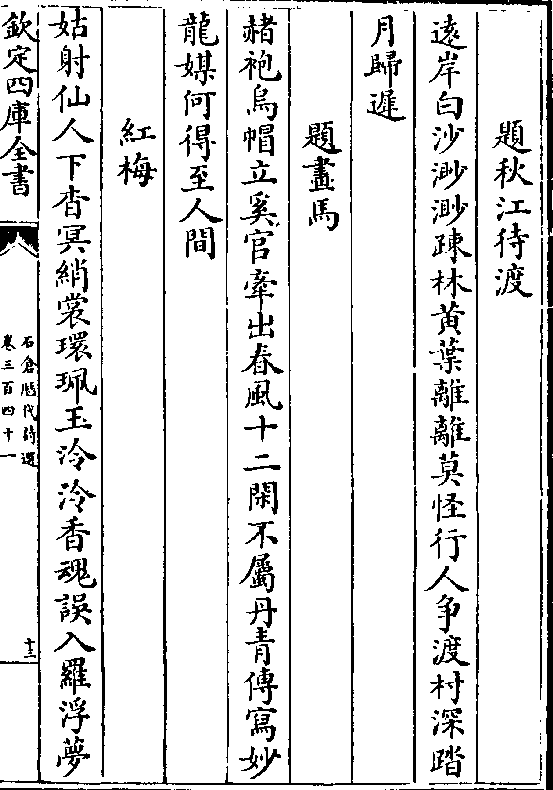 題秋江待渡
遠岸白沙渺渺疎林黄葉離離莫怪行人争渡村深踏
月歸遲
題畫馬
赭袍烏帽立奚官牽出春風十二閑不屬丹青傳寫妙
龍媒何得至人間
紅梅
姑射仙人下杳冥綃裳環珮玉泠泠香魂誤入羅浮夢
欽定四庫全書
石倉歴代詩選
卷三百四十一
十三